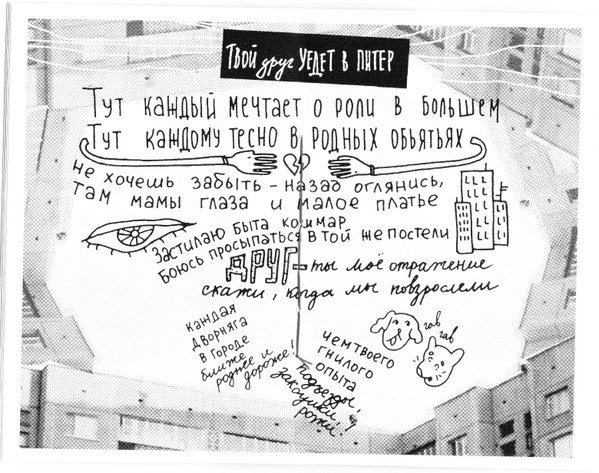 Твой друг уедет в Питер
Тут каждый мечтает о роли в большем
Тут каждому тесно в родных обьятьях
не хочешь забыть – назад оглянись,
там мамы глаза и малое платье
Застилаю быта кошмар
боюсь просыпаться в той же постели
ДРУГ – ты моё отражение
скажи, когда мы повзрослели
каждая
дворняга
в городе
ближе
роднее и
дороже!
чем твоего
гнилого
опыта
подъезды,
закоулки
рожи!!
гав
гав